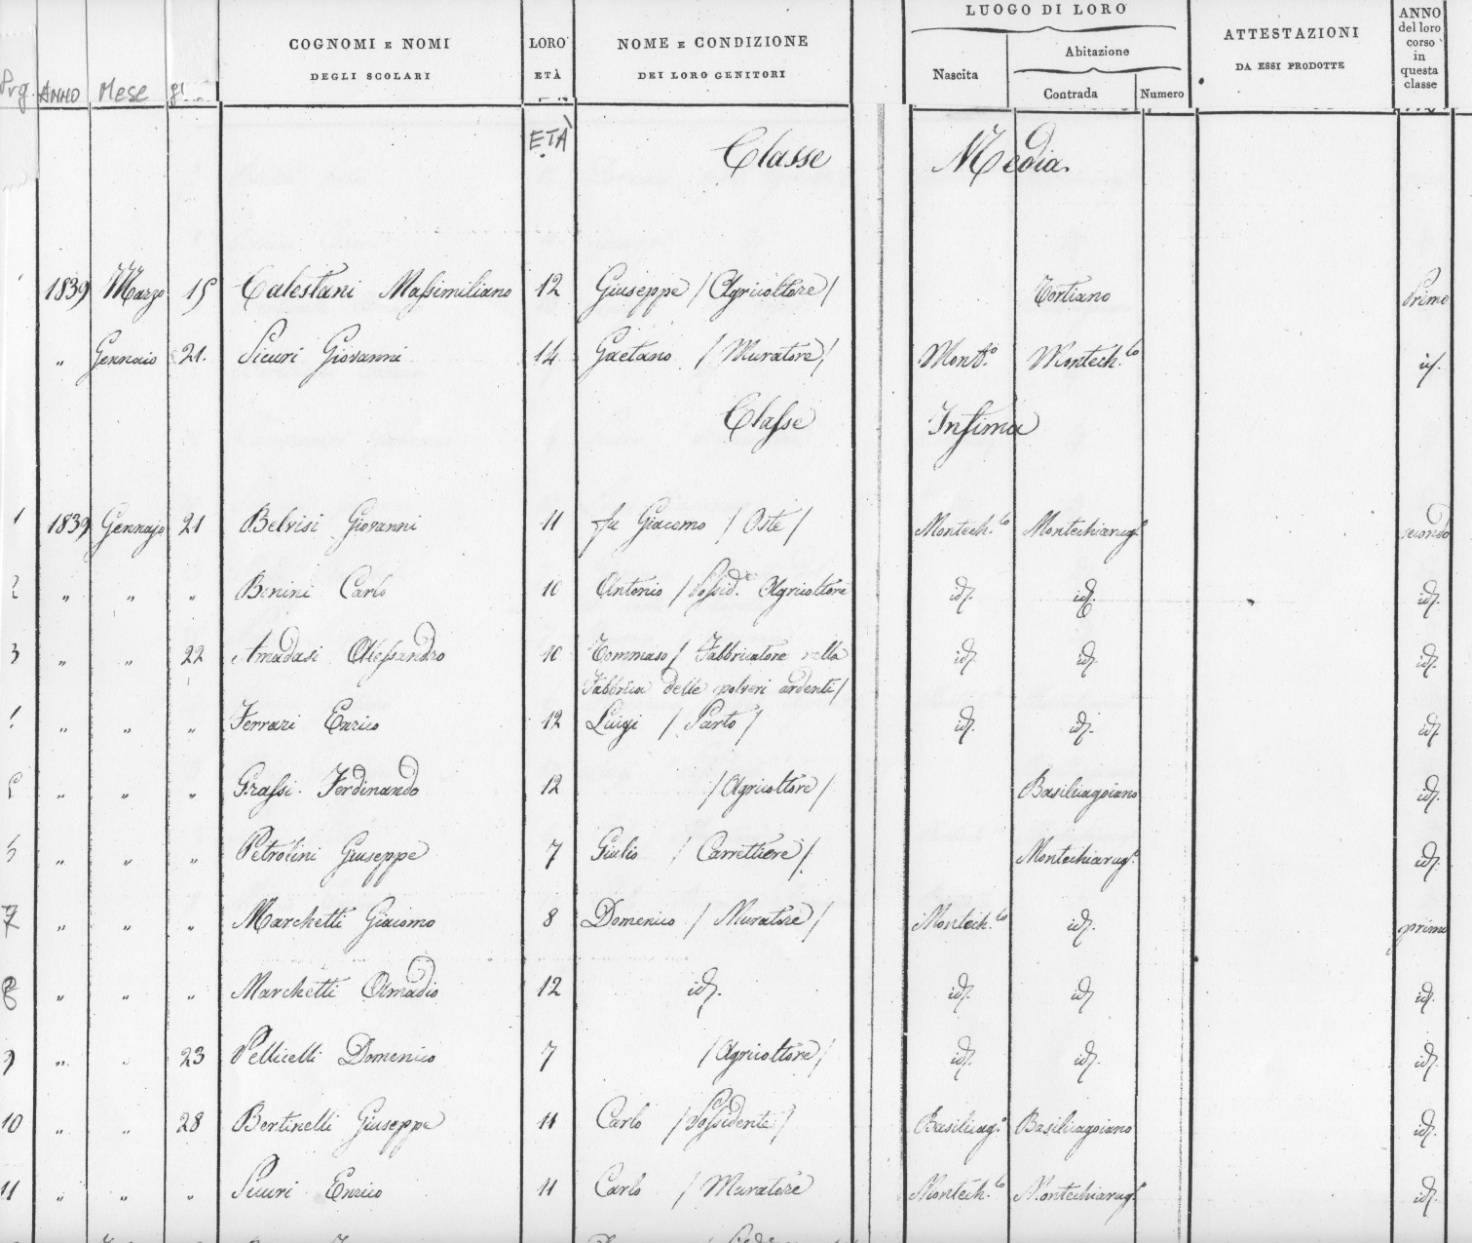 LUOGO DI LORO
COGNOMI E NOMI DEGLI SCOLARI LORO ETÀ NOME E CONDIZIONE DEI LORO GENITORI Nascita Abitazione Contrada Numero ATTESTAZIONI DA ESSI PRODOTTE ANNO del loro corso in questa classe
Prg. ANNO Mese
ETÀ
Classe Media
1839 Marzo 15 Calestani Massimiliano 12 Giuseppe /Agricoltore/ Tortiano Primo
" Gennaio 21. Sicuri Giovanni 14 Gaetano /Muratore/ Montech.lo id.
Classe Infima
1 1839 Gennajo 21 Belvisi Giovanni 11 fu Giacomo /Oste/ Montech.lo Montechiarug.o secondo
2 " " " Benini Carlo 10 Antonio /Possid.e Agricoltore id. id. id.
3 " " 22 Amadasi Alessandro 10 Tommaso/ Fabbricatore nella id. id. id.
Fabbrica delle polveri ardenti/
" " " Ferrari Enrico 12 Luigi /Sarto/ id. id. id.
5 " " " Grassi Ferdinando 12 /Agricoltore/ Basilicagoiano id.
" " " Petrolini Giuseppe 7 Giulio /Carrettiere/. Montechiarug.o id.
7 " " " Marchetti Giacomo 8 Domenico /Muratore/ Montech.lo id. primo
8 " " " Marchetti Amadio 12 id. id. id. id.
9 " " 23 Pellicelli Domenico 7 /Agricoltore/ id. id. id.
10 " " 28 Bertinelli Giuseppe 11 Carlo /Possidente/ Basilicag.o Basilicagoiano id.
11 " " " Sicuri Enrico 11 Carlo /Muratore Montech.lo Montechiarug.o id.